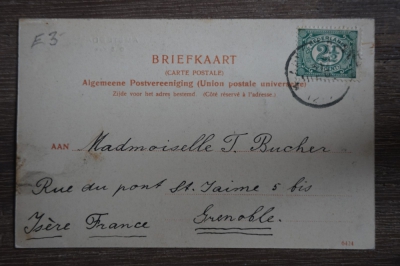 E3
BRIEFKAART
(CARTE POSTALE)
Algemeene Postvereeniging (Union postale universelle)
Zijde voor het adres bestemd. (Côté réservé à l'adresse.)
2½
AAN Madmoiselle T. Bucher
Rue du pont St. Jaime 5 bis
Isère France Grenoble.